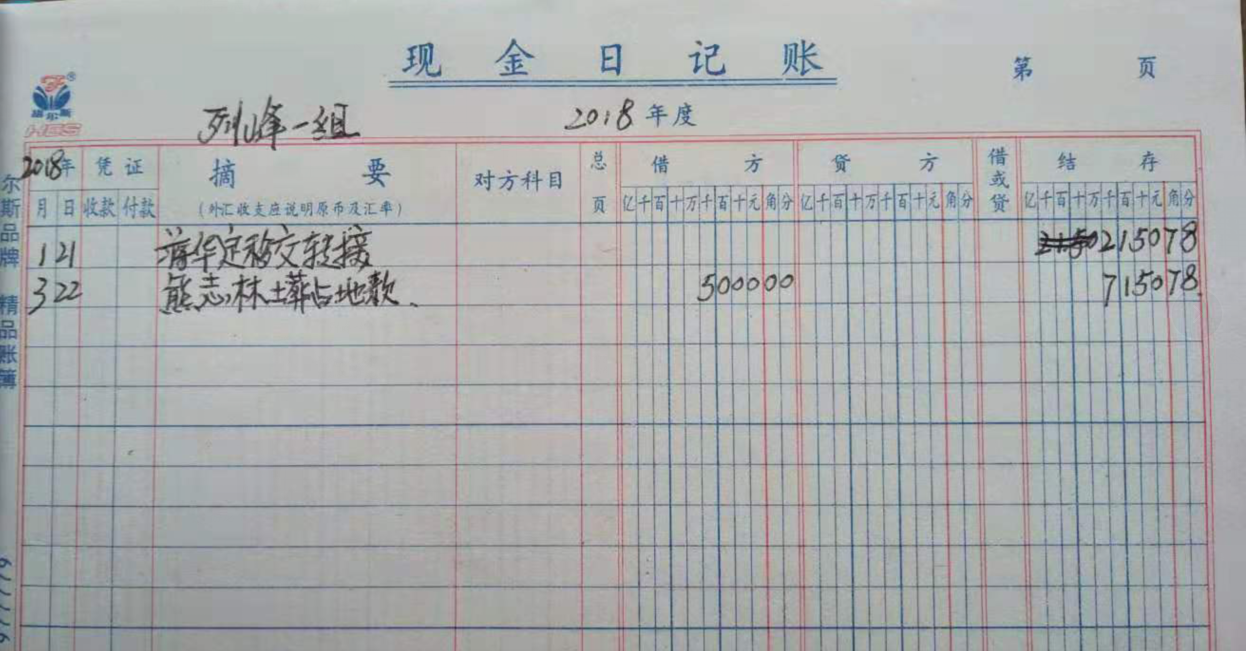 现金日记账
第 页
HBS
列峰一组 2018年度
2018年 凭证 摘要 对方科目 总页 借方 贷方 借或贷 结存
月 日 收款 付款 (外汇收支应说明原币及汇率) 亿千百十万千百十元角分 亿千百十万千百十元角分 亿千百十万千百十元角分
1 21 蒋华定移交转接 215078
3 22 熊志林土葬占地款. 500000 715078
尔斯品牌 精品账簿